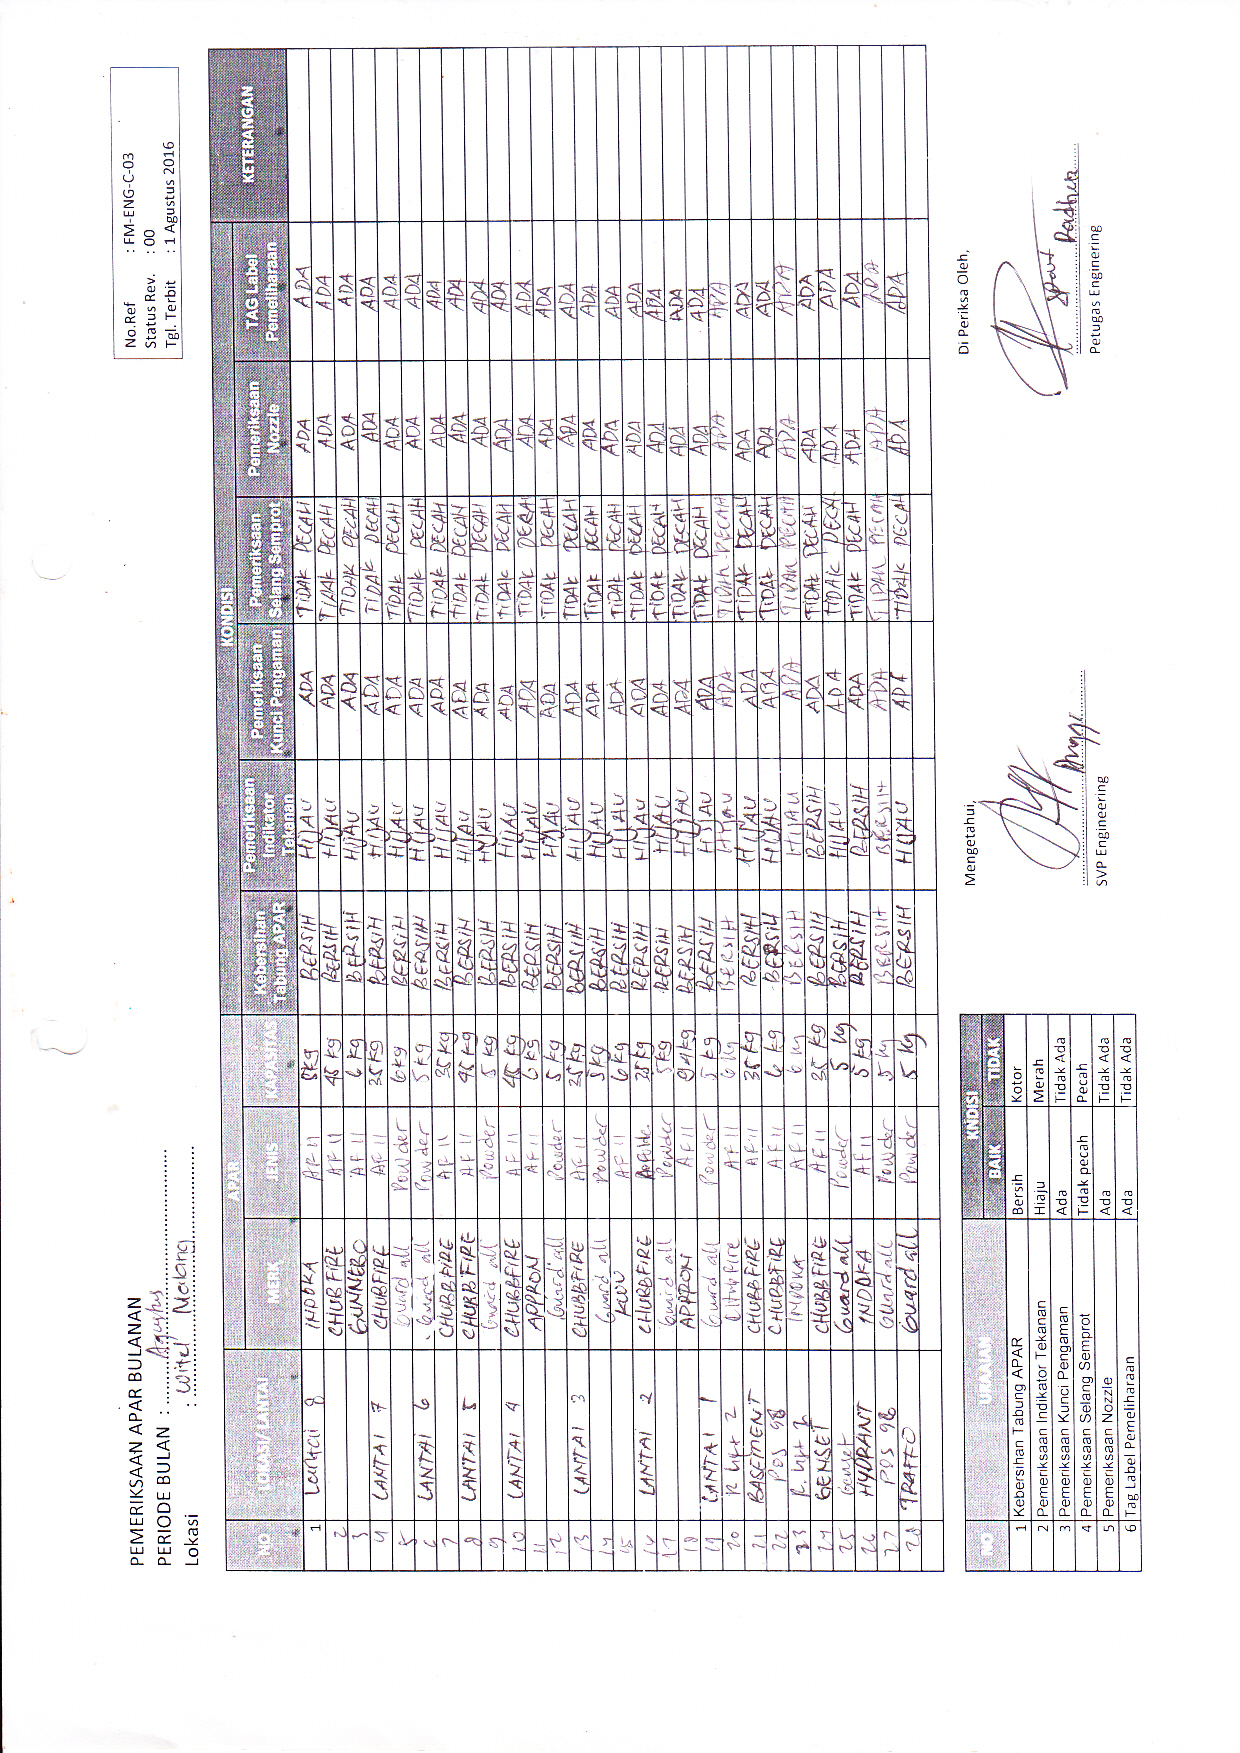 PEMERIKSAAN APAR BULANAN
PERIODE BULAN : Agustus
Lokasi : Witel Malang
No.Ref : FM-ENG-C-03
Status Rev. : 00
Tgl. Terbit : 1 Agustus 2016
NO LOKASI/ LANTAI APAR KONDISI KETERANGAN
MERK JENIS KAPASITAS Kebersihan Tabung APAR Pemeriksaan Indikator Tekanan Pemeriksaan Kunci Pengaman Pemeriksaan Selang Semprot Pemeriksaan Nozzle TAG Label Pemeliharaan
1 Lantai 8 INDOKA AF 11 8kg BERSIH HIJAU ADA TIDAK PECAH ADA ADA
2 CHUB FIRE AF 11 45 kg BERSIH HIJAU ADA TIDAK PECAH ADA ADA
3 GUNNEBO AF 11 6 kg BERSIH HIJAU ADA TIDAK PECAH ADA ADA
4 LANTAI 7 CHUBBFIRE AF 11 35 kg BERSIH HIJAU ADA TIDAK PECAH ADA ADA
5 Guard all Powder 6 kg BERSIH HIJAU ADA TIDAK PECAH ADA ADA
6 LANTAI 6 Guard all Powder 5 kg BERSIH HIJAU ADA TIDAK PECAH ADA ADA
7 CHUBBFIRE AF 11 35 kg BERSIH HIJAU ADA TIDAK PECAH ADA ADA
8 LANTAI 5 CHUBBFIRE AF 11 45 kg BERSIH HIJAU ADA TIDAK PECAH ADA ADA
9 Guard all Powder 5 kg BERSIH HIJAU ADA TIDAK PECAH ADA ADA
10 LANTAI 4 CHUBBFIRE AF 11 45 kg BERSIH HIJAU ADA TIDAK PECAH ADA ADA
11 APPRON AF 11 6 kg BERSIH HIJAU ADA TIDAK PECAH ADA ADA
12 Guard all Powder 5 kg BERSIH HIJAU ADA TIDAK PECAH ADA ADA
13 LANTAI 3 CHUBBFIRE AF 11 25 kg BERSIH HIJAU ADA TIDAK PECAH ADA ADA
14 Guard all Powder 5 kg BERSIH HIJAU ADA TIDAK PECAH ADA ADA
15 AF 11 6 kg BERSIH HIJAU ADA TIDAK PECAH ADA ADA
16 LANTAI 2 CHUBBFIRE 35 kg BERSIH HIJAU ADA TIDAK PECAH ADA ADA
17 Guard all Powder 5 kg BERSIH HIJAU ADA TIDAK PECAH ADA ADA
18 APPRON AF 11 kg BERSIH HIJAU ADA TIDAK PECAH ADA ADA
19 LANTAI 1 Guard all Powder 5 kg BERSIH HIJAU ADA TIDAK PECAH ADA ADA
20 R. lift 2 AF 11 6 kg BERSIH HIJAU ADA TIDAK PECAH ADA ADA
21 BASEMENT CHUBBFIRE AF 11 35 kg BERSIH HIJAU ADA TIDAK PECAH ADA ADA
22 POS 98 CHUBBFIRE AF 11 6 kg BERSIH HIJAU ADA TIDAK PECAH ADA ADA
23 R. lift 2 INDOKA AF 11 6 kg BERSIH HIJAU ADA TIDAK PECAH ADA ADA
24 GENSET CHUBBFIRE AF 11 35 kg BERSIH BERSIH ADA TIDAK PECAH ADA ADA
25 Genset Guard all Powder 5 kg BERSIH HIJAU ADA TIDAK PECA ADA ADA
26 HYDRANT INDOKA AF 11 5 kg BERSIH BERSIH ADA TIDAK PECAH ADA ADA
27 POS 98 Guard all Powder 5 kg BERSIH BERSIH ADA TIDAK PECAH ADA ADA
28 TRAFFO Guard all Powder 5 kg BERSIH HIJAU ADA TIDAK PECAH ADA ADA
NO URAAIAN KNDISI
BAIK TIDAK
1 Kebersihan Tabung APAR Bersih Kotor
2 Pemeriksaan Indikator Tekanan Hiaju Merah
3 Pemeriksaan Kunci Pengaman Ada Tidak Ada
4 Pemeriksaan Selang Semprot Tidak pecah Pecah
5 Pemeriksaan Nozzle Ada Tidak Ada
6 Tag Label Pemeliharaan Ada Tidak Ada
Mengetahui,
Anggi
SVP Engineering
Di Periksa Oleh,
Petugas Enginering